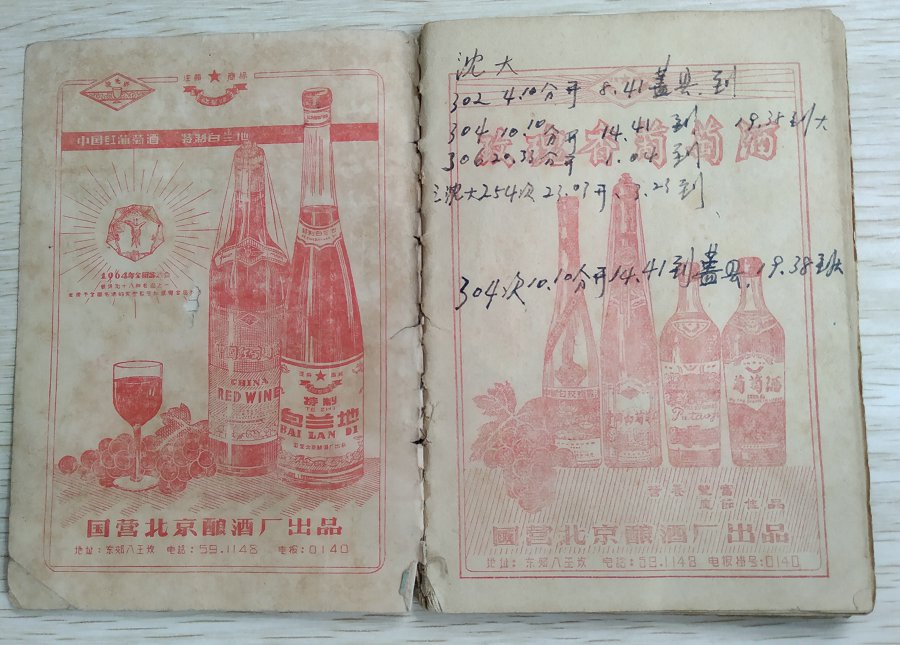 注册 ★ 商标
中国红葡萄酒 特制白兰地
1964年全国
中国红
CHINA
RED WINE
注册 ★ 商标
特制
TE ZHI
白兰地
BAI LAN DI
国营北京酿酒厂出品
国营北京酿酒厂出品
地址：东郊八王坟 电话：59.1148 电报：0140
沈大
302 4.10分开 8.41盖县.到
304.10.10分开 14.41到 19.35到大
306.20.33分开 1.04到
沈大254次23.03开 3.23到
304次10.10分开14.41到盖县.19.38到大
香葡萄酒
葡萄酒
营养丰富
国营北京酿酒厂出品
地址：东郊八王坟 电话：59.1148 电报挂号：0140